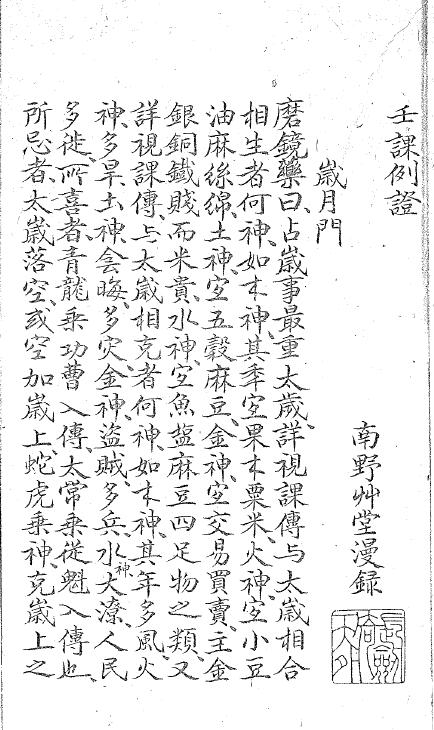 壬課例證
南野艸堂漫録
歲月門
磨鏡藥曰占歲事最重太歲詳視課傳与太歲相合
相生者何神如木神其年宐果木粟米火神宐小豆
油麻絲綿土神宐五穀麻豆金神宐交易買賣主金
銀銅鐵賤而米貴水神宐魚塩麻豆四足物之類又
詳視課傳与太歲相克者何神如木神其年多風火
神多旱土神会晦多灾金神盗賊多兵水神大潦人民
多徙所喜者青龍乘功曹入傳太常乘從魁入傳也
所忌者太歲落空或空加歲上蛇虎乘神克歲上之